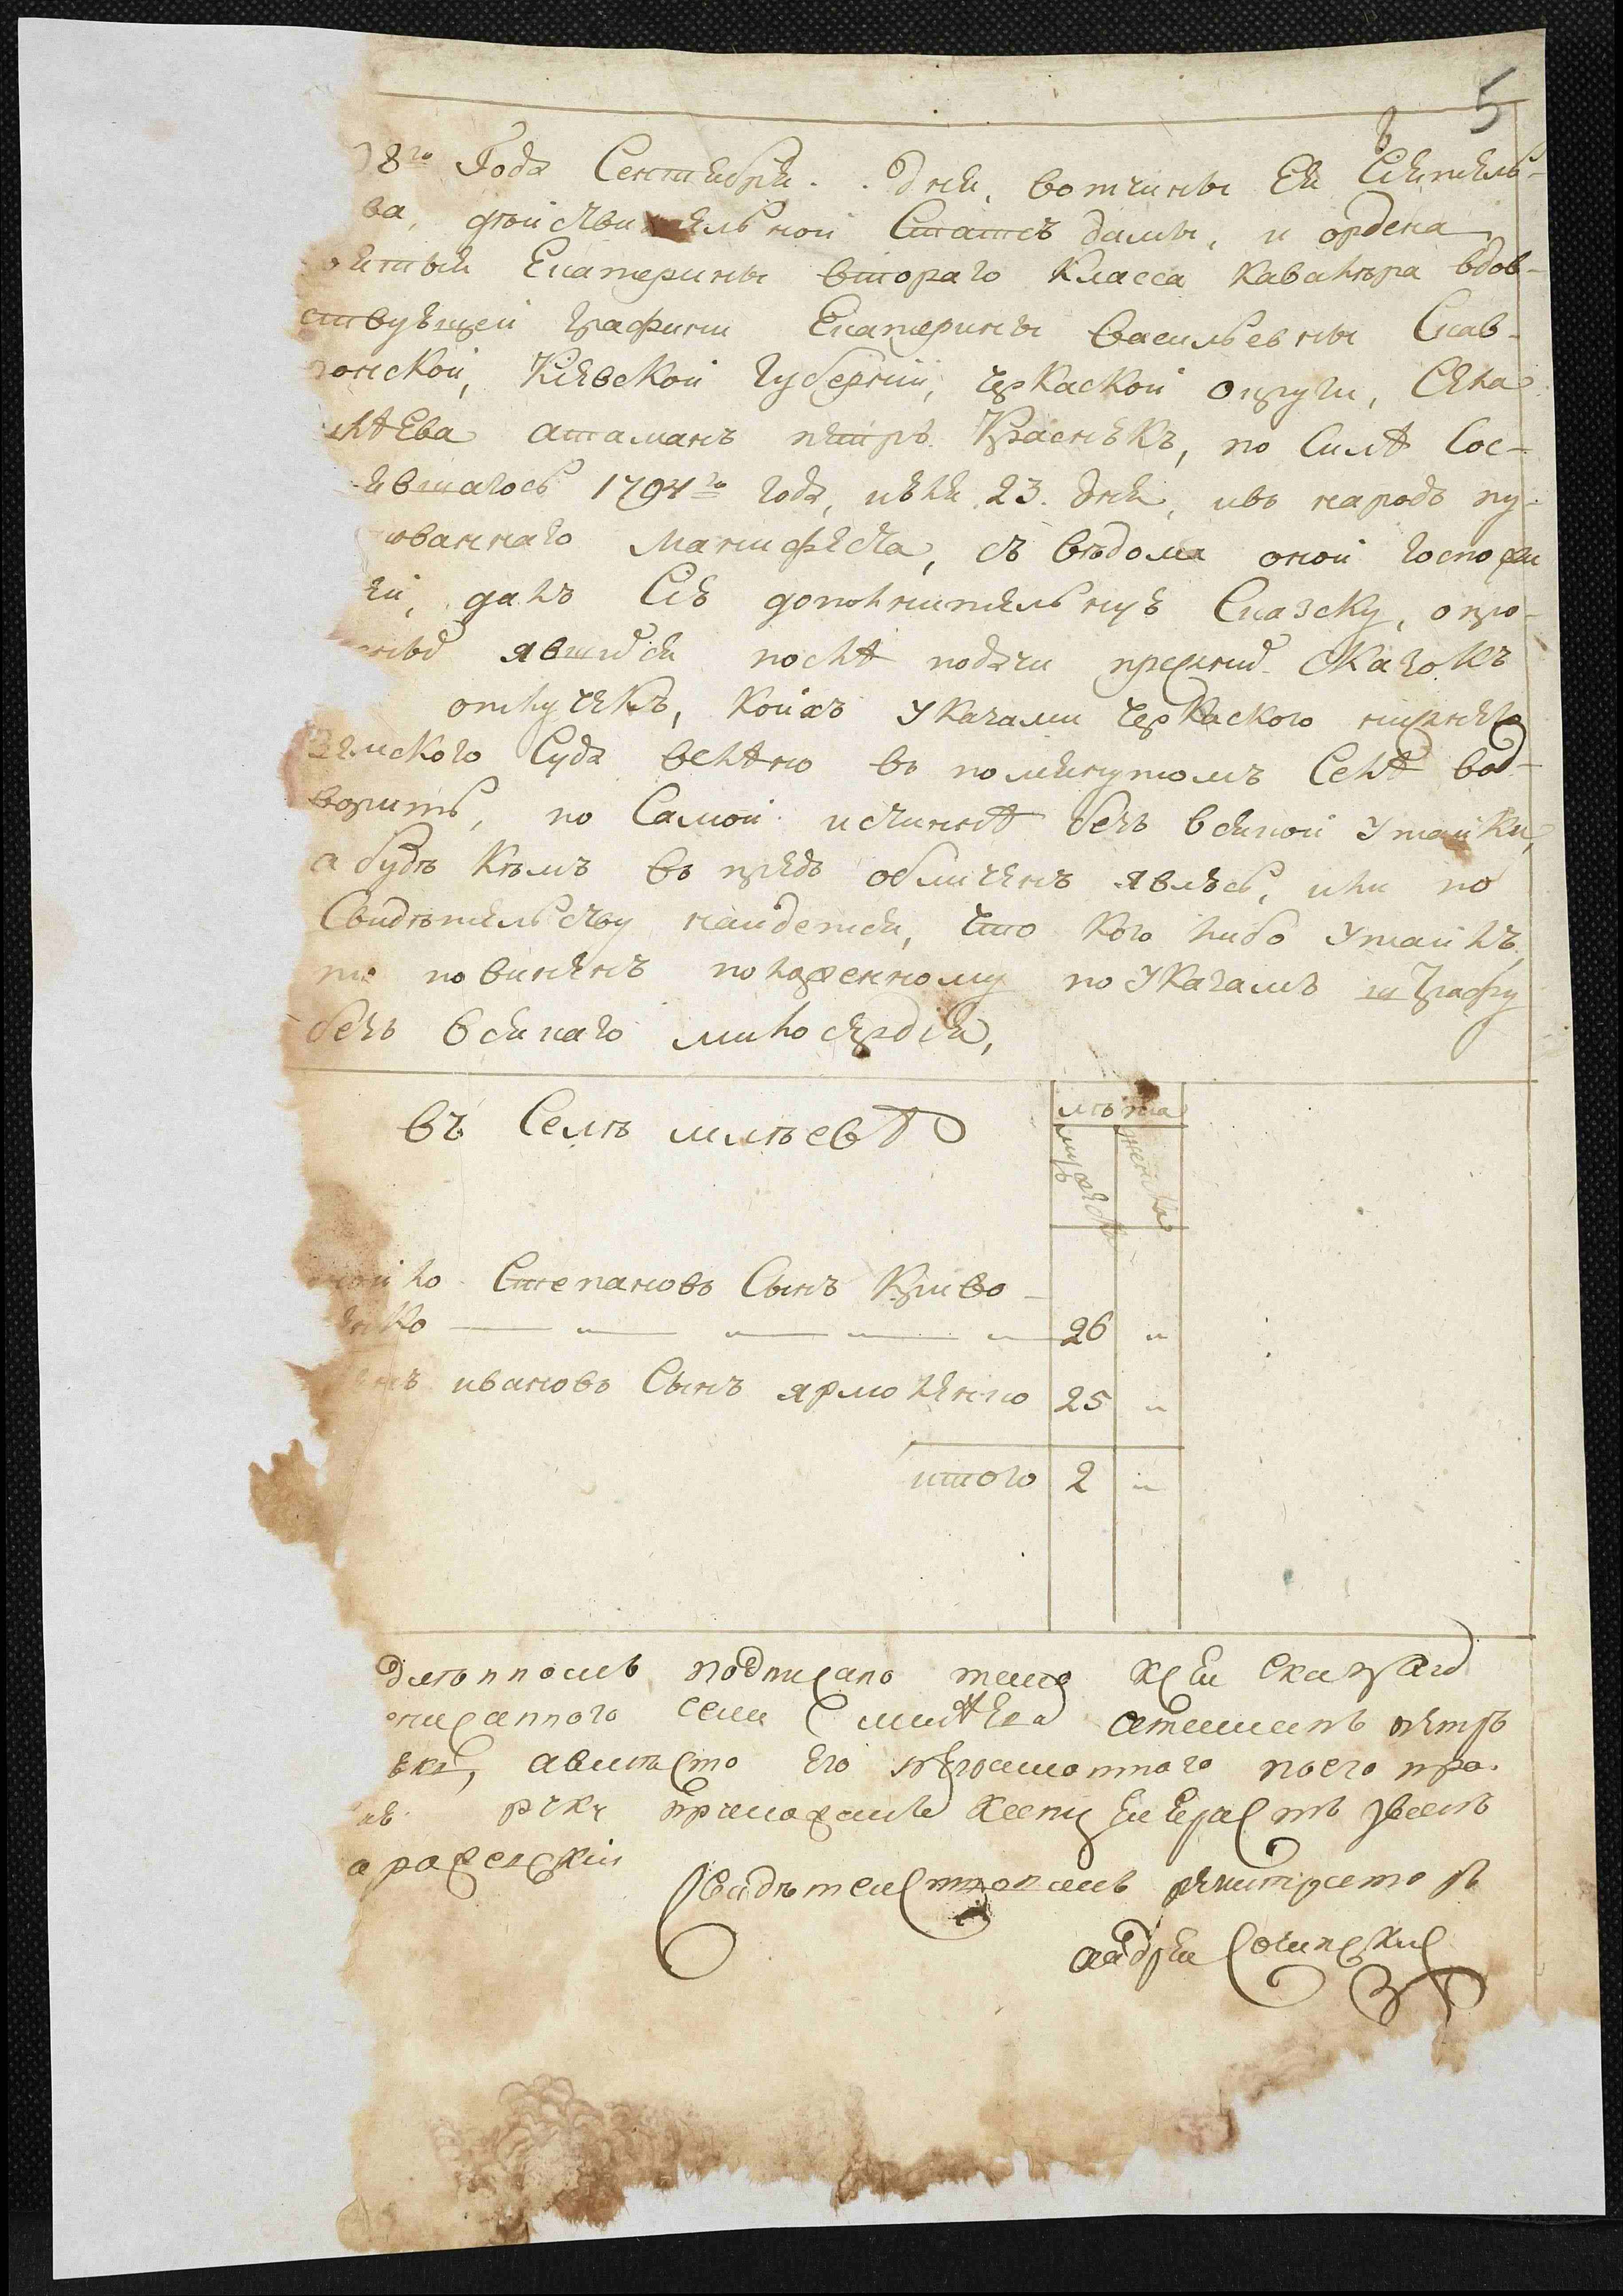 5
98го года Сентября . . дня, вотчины Ея Сіятель-
ва, дѣйствительной Статсъ дамы, и ордена
святыя Екатерины втораго класса кавалера вдов-
ствующей графини Екатерины Васильевны Скав-
ронской, Кіевской губерніи, черкаской округи, Села
млѣева атаманъ петръ Краснюкъ, по Силѣ Сос-
явшагось 1794го года, июня 23. дня, ивъ народъ пу-
кованнаго манифеста, съ вѣдома оной госпожи
ей, далъ Сію дополнительную Сказску, опро-
ныхъ явшихся послѣ подачи прежних сказокъ
отлучекъ, коихъ указами черкаского нижнего
земского Суда велѣно въ помянутомъ Селѣ вод-
ворить, по Самой истиннѣ безъ всякой утайки,
а буде кѣмъ въ предь обличенъ явлюсь, или по
Свидѣтельству найдется, что кого либо утаилъ,
то повиненъ положенному по указамъ штрафу
безъ всякаго милосердія,
въ Селѣ млѣевѣ
лѣта
мужеска
женска
Степановъ Сынъ Криво-
енко 26 "
ивановъ Сынъ ярмоленко 25 "
итого 2 "
подписано
села атаманъ петръ
юкъ, авмѣсто его неграмотного
руку приложилъ
регистраторъ
андрей